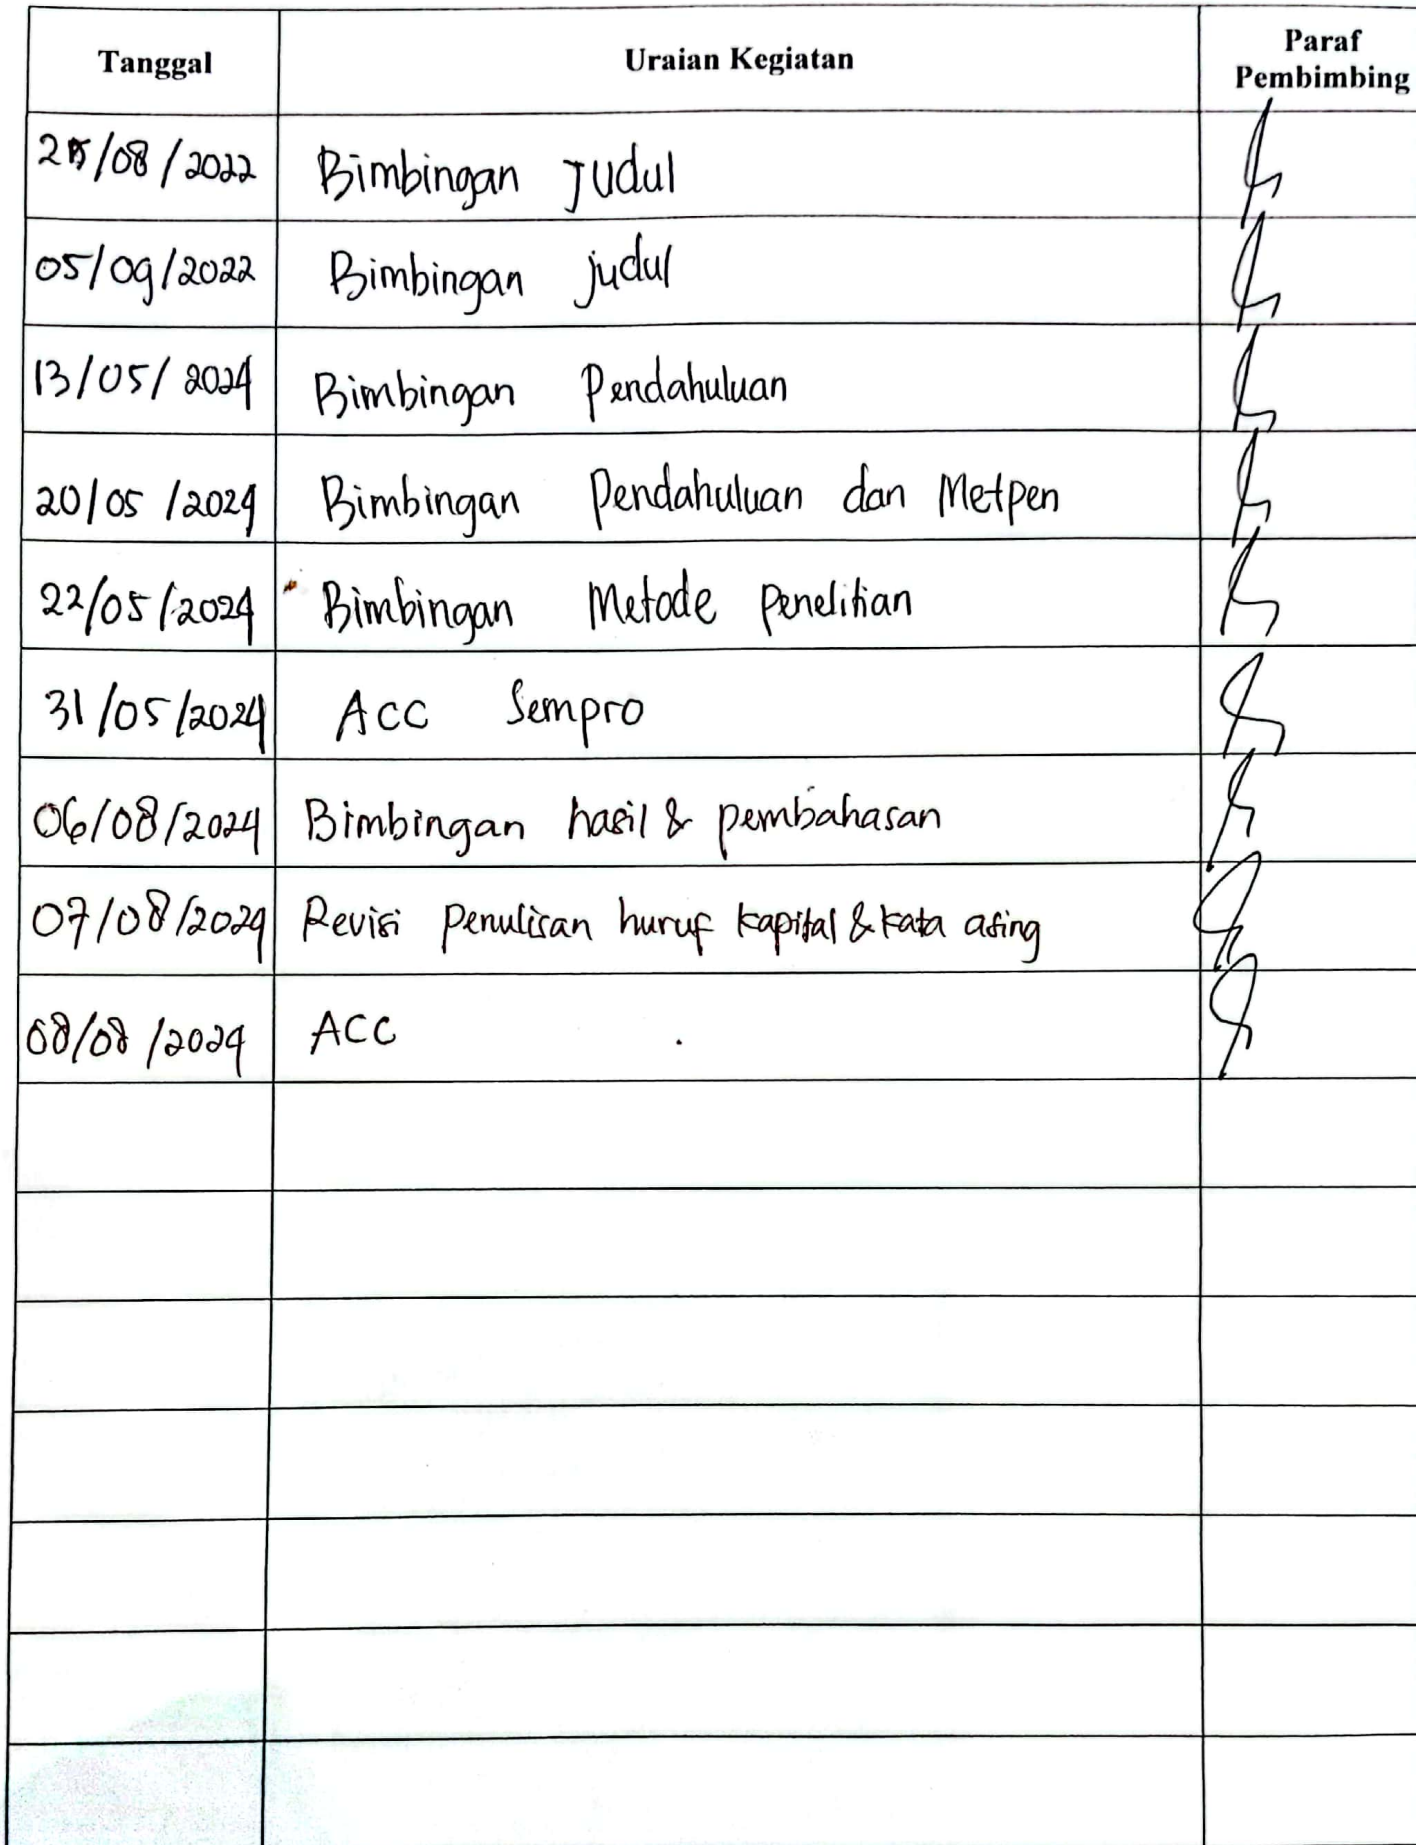 Tanggal Uraian Kegiatan Paraf
Pembimbing
/08/2022 Bimbingan Judul
05/09/2022 Bimbingan judul
13/05/2024 Bimbingan Pendahuluan
20/05/2024 Bimbingan Pendahuluan dan Metpen
22/05/2024 Bimbingan Metode Penelitian
31/05/2024 ACC Sempro
06/08/2024 Bimbingan hasil & pembahasan
07/08/2024 Revisi Penulisan huruf kapital & kata asing
08/08/2024 ACC